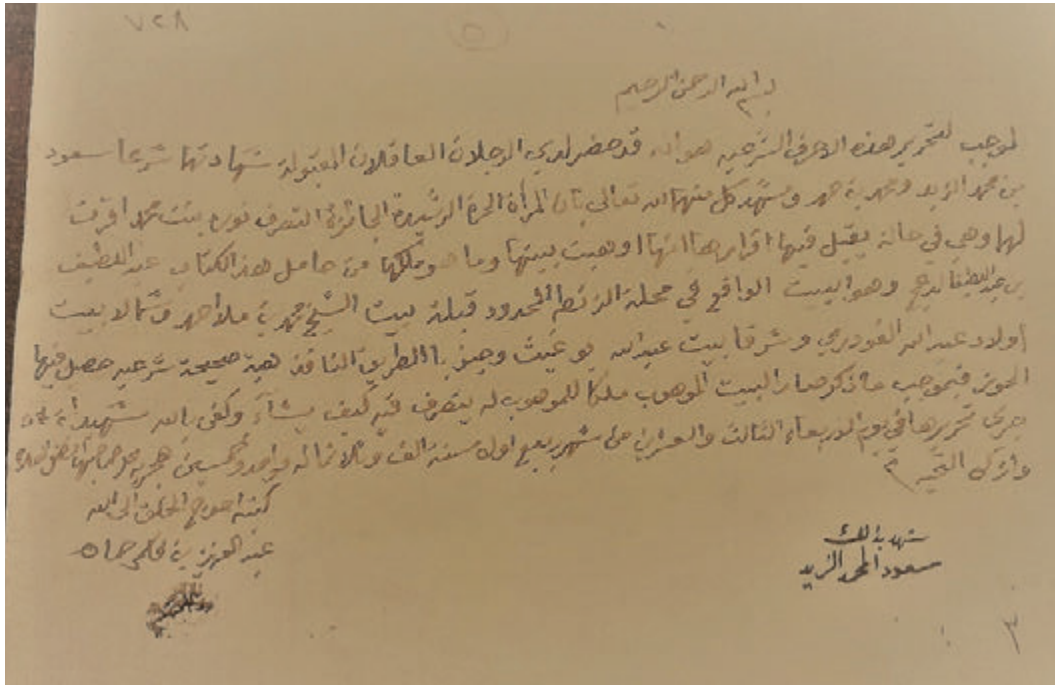 ٧٢٨
٥
بسم الله الرحمن الرحيم
الموجب لتحرير هذه الاحرف الشرعيه هو انه قد حضر لدي الرجلان العاقلان المقبولة شهادتها شرعا سعود
بن محمد الزيد ومحمد بن حمد وشهد كل منهما لله تعالى بأن المرأة الحرة الرشيدة الجائزة التصرف نوره بنت محمد اقرت
لهما وهي في حالة يقبل فيها اقرارها انها اوهبت بيتها وما هو ملكها من حامل هذا الكتاب عبد اللطيف
بن عبد اللطيف وهو البيت الواقع في محلة المحدود قبلة بيت الشيخ محمد بن ملا احمد وشمالا بيت
اولاد عبد الله وشرقا بيت عبد الله بو غيث وجنوبا الطريق النافذ هبة صحيحة شرعيه حصل فيها
الحوز فبموجب ما ذكر صار البيت الموهوب ملكا للموهوب له يتصرف فيه كيف يشآء وكفى بالله شهيدا
جرى تحريرها في يوم الاربعاء الثالث والعشرين من شهر ربيع اول سنة الف وثلاثمائه وواحد وخمسين هجريه على صاحبها افضل الصلاة
وازكى التحيه
كتبه احوج الخلق الى الله
عبد العزيز بن قاسم حماده
شهد بذلك
سعود المحمد الزيد
٣